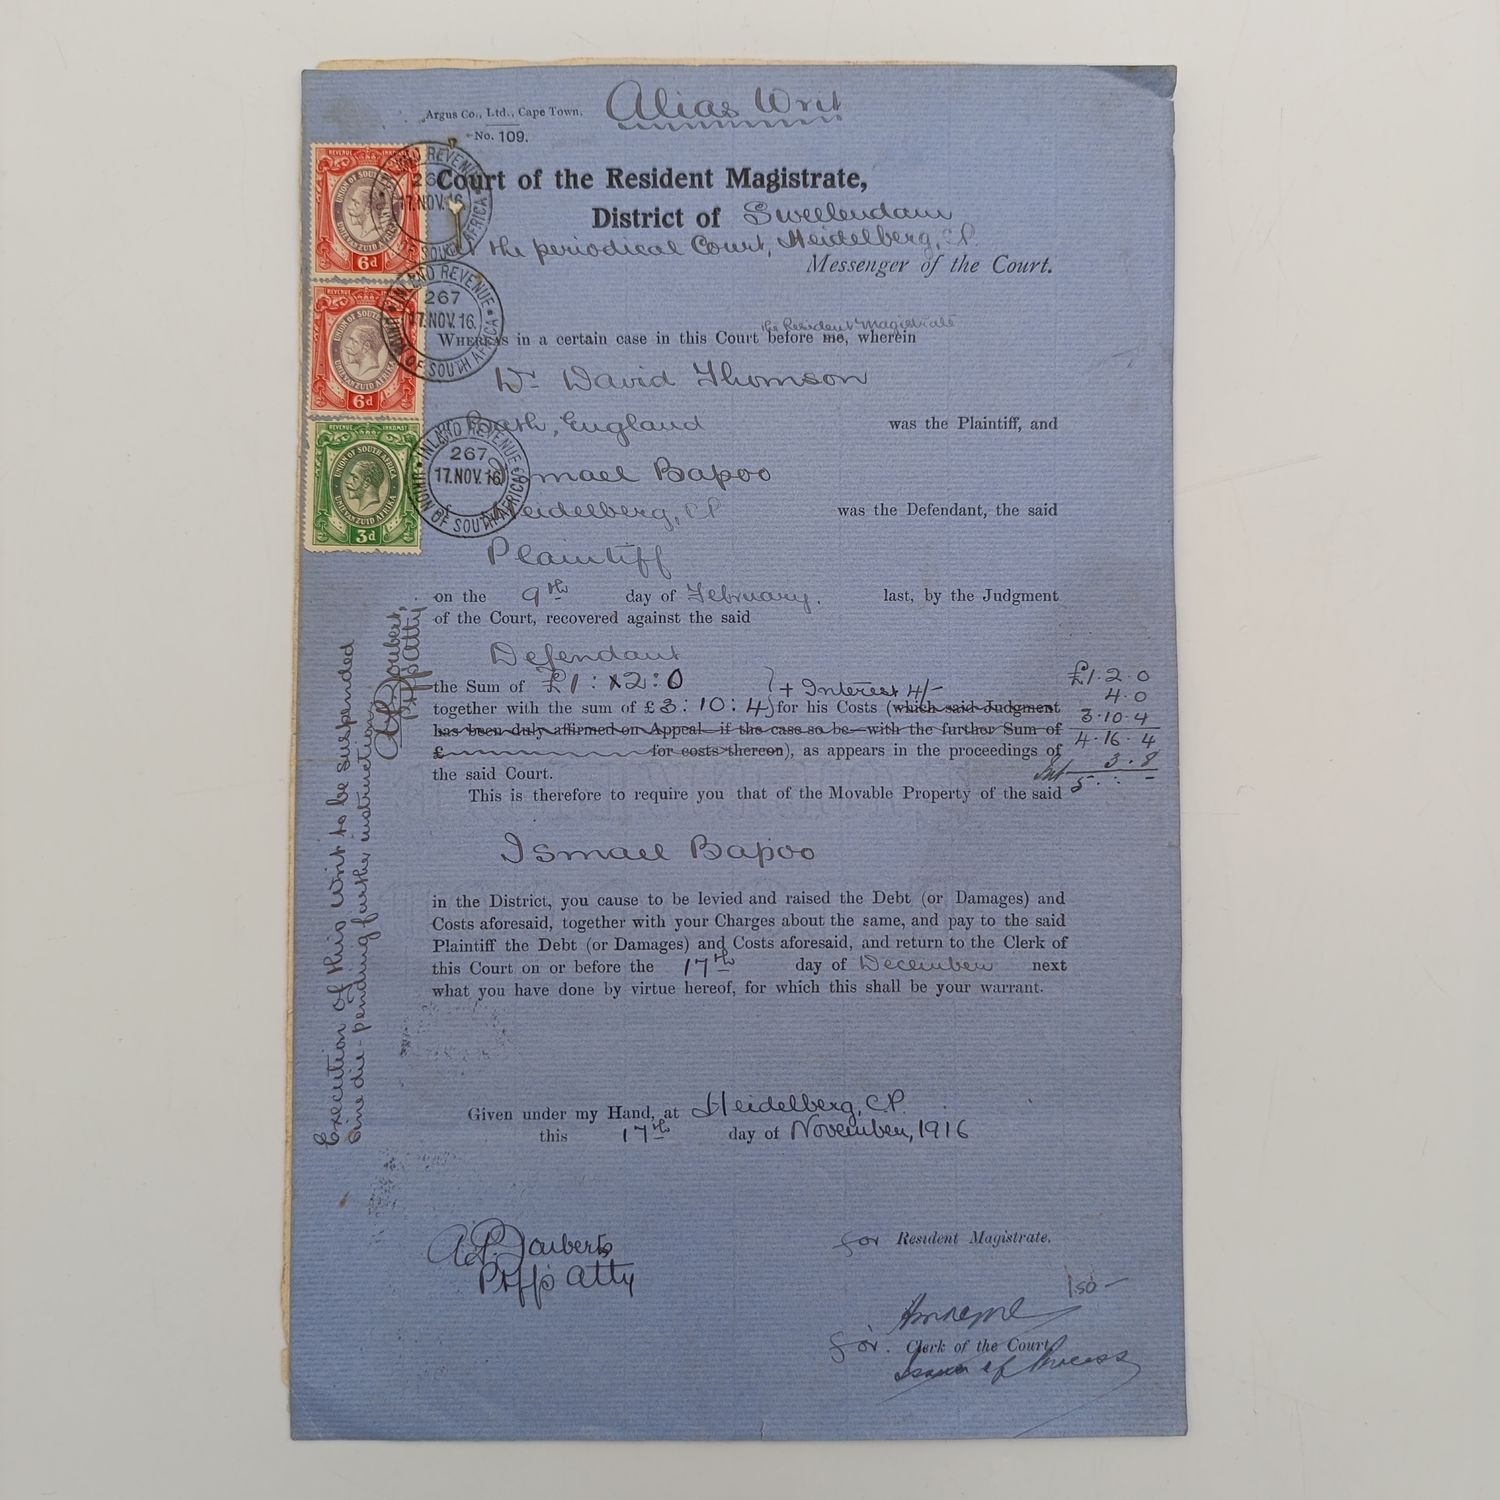 Alias Writ
Argus Co., Ltd., Cape Town.
No. 109.
Court of the Resident Magistrate,
District of Swellendam
the periodical Court, Heidelberg, C.P.
Messenger of the Court.
the Resident Magistrate
WHEREAS in a certain case in this Court before me, wherein
Dr David Thomson
England
was the Plaintiff, and
Ismael Bapoo
Heidelberg, C.P.
was the Defendant, the said
Plaintiff
on the 9th day of February, last, by the Judgment
of the Court, recovered against the said
Defendant
the Sum of £1 : 2 : 0 } + Interest 4/-
together with the sum of £3 : 10 : 4 } for his Costs (which said Judgment
has been duly affirmed on Appeal—if the case so be—with the further Sum of
£ for costs thereon), as appears in the proceedings of
the said Court.
£1 . 2 . 0
4 . 0
3 . 10 . 4
4 . 16 . 4
3 . 8
5 . . -
This is therefore to require you that of the Movable Property of the said
Ismael Bapoo
in the District, you cause to be levied and raised the Debt (or Damages) and
Costs aforesaid, together with your Charges about the same, and pay to the said
Plaintiff the Debt (or Damages) and Costs aforesaid, and return to the Clerk of
this Court on or before the 17th day of December next
what you have done by virtue hereof, for which this shall be your warrant.
Given under my Hand, at Heidelberg, C.P.
this 17th day of November, 1916
A.P. Joubert
Ptff's Atty
for Resident Magistrate.
for. Clerk of the Court
Issuer of Process
Execution of this Writ to be suspended
sine die - pending further instructions
A.P. Joubert,
Ptff's Atty
REVENUE INKOMST
UNION OF SOUTH AFRICA
UNIE VAN ZUID AFRIKA
6d
REVENUE
UNION OF SOUTH
UNIE VAN ZUID AFRIKA
6d
REVENUE INKOMST
UNION OF SOUTH AFRICA
UNIE VAN ZUID AFRIKA
3d
INLAND REVENUE
267
17.NOV.16
UNION OF SOUTH AFRICA
INLAND REVENUE
267
17.NOV.16
UNION OF SOUTH AFRICA
INLAND REVENUE
267
17.NOV.16
UNION OF SOUTH AFRICA